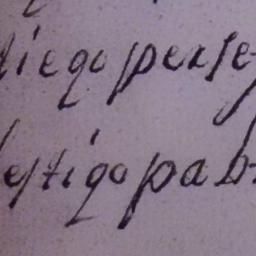 diego perse
testigo pab